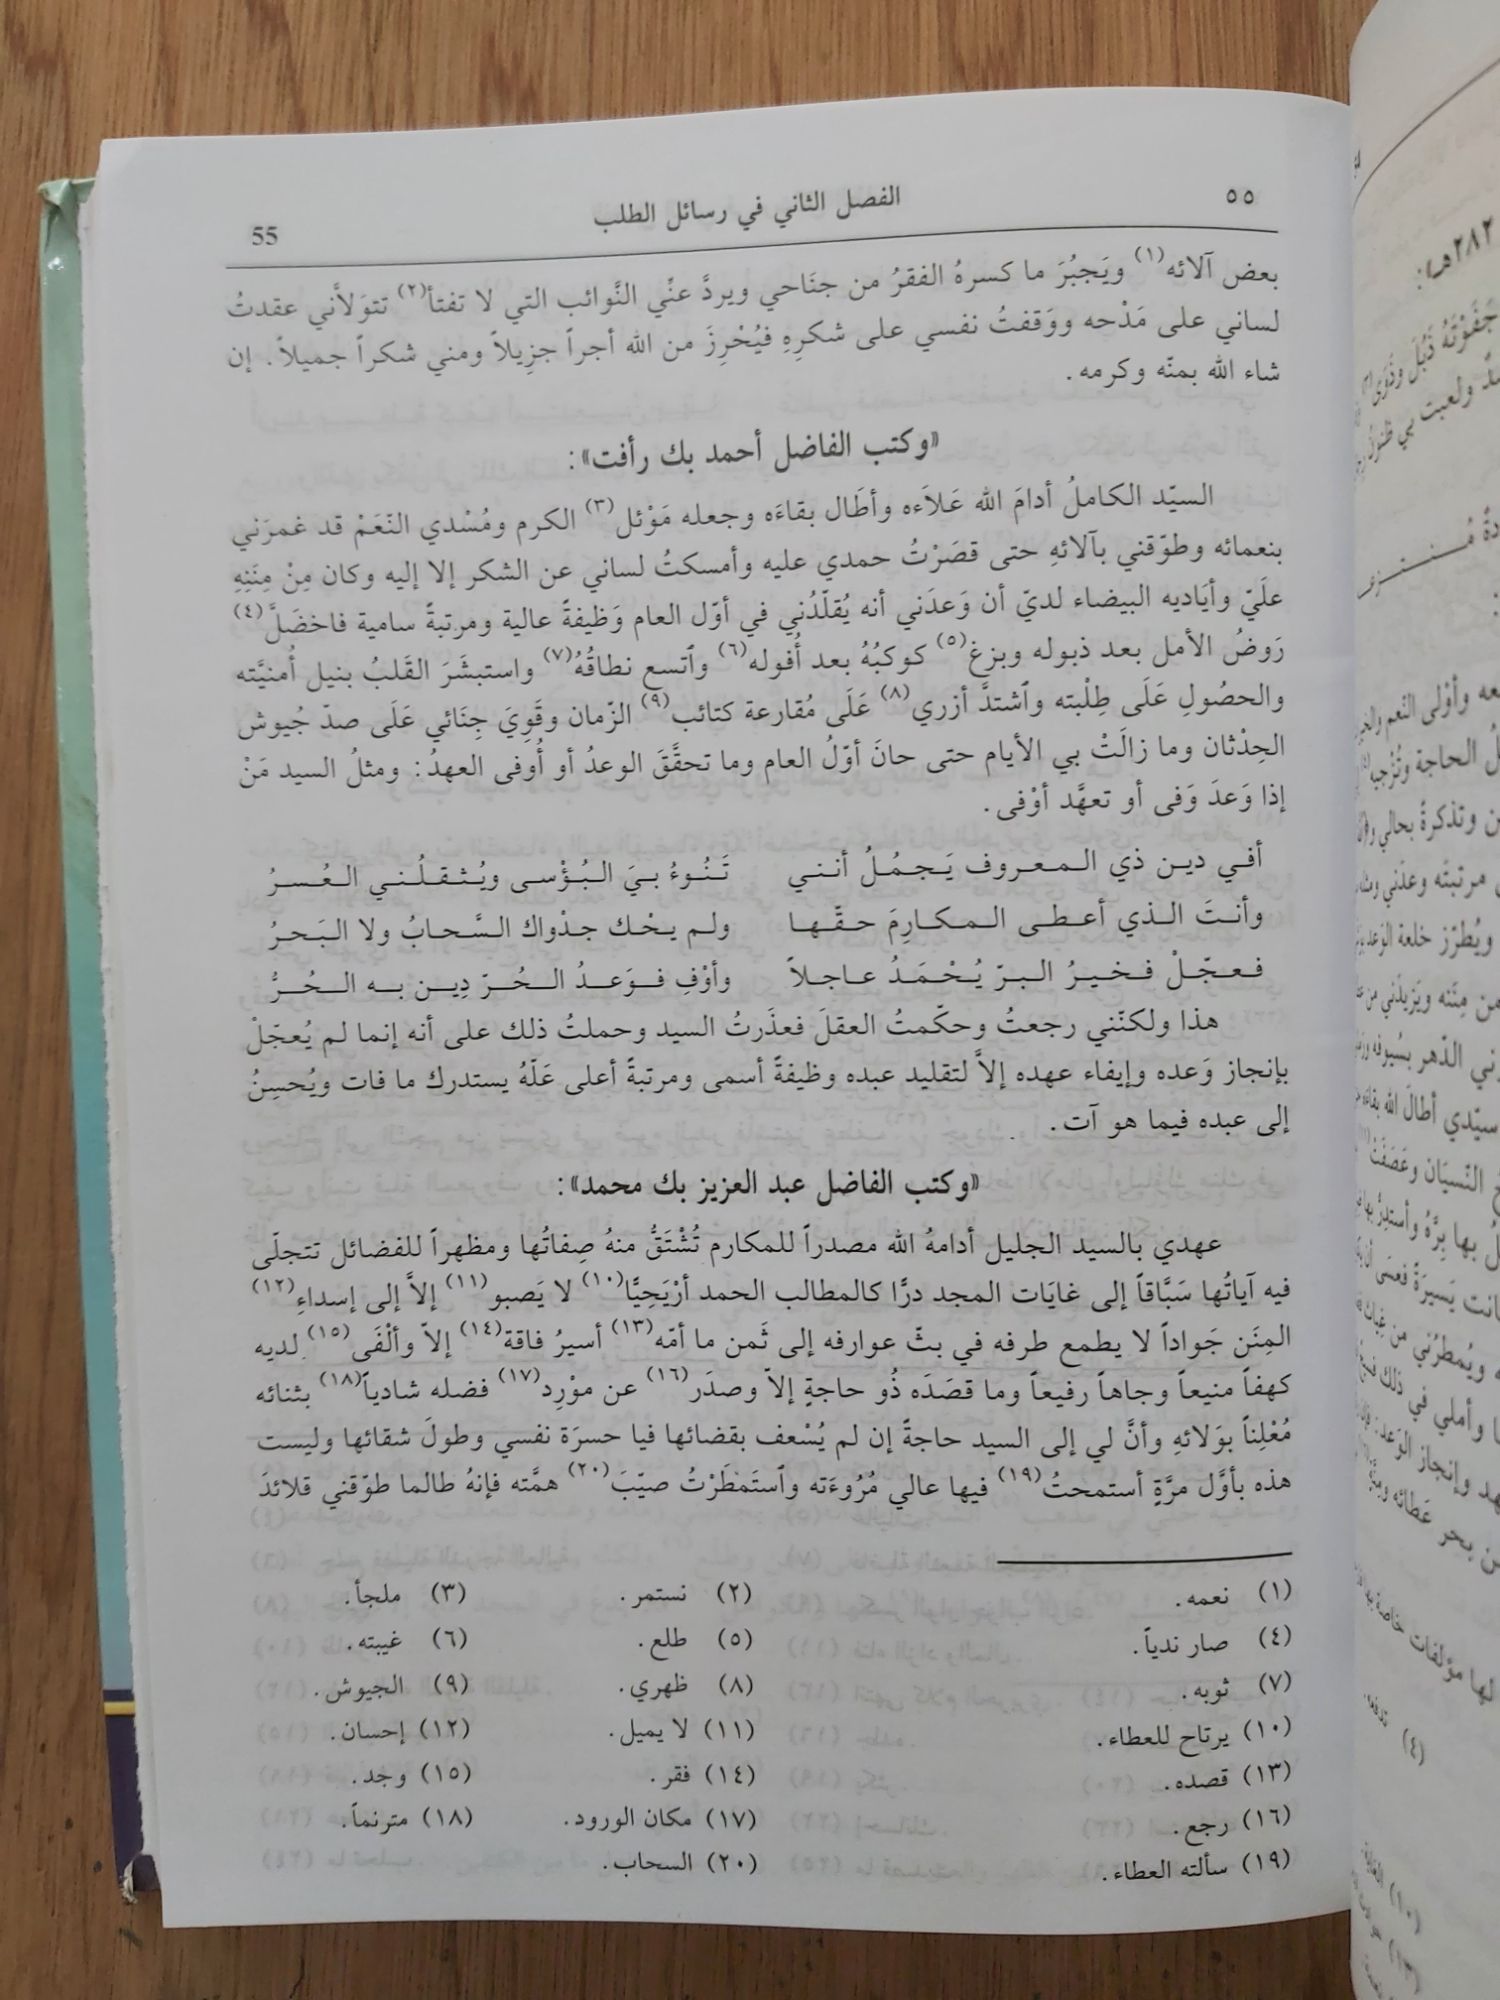 ٥٥ الفصل الثاني في رسائل الطلب 55
بعض آلائه(١) ويَجبُرَ ما كسرهُ الفقرُ من جنَاحي ويردَّ عنِّي النَّوائب التي لا تفتأ(٢) تتوَلاَّني عقدتُ
لساني على مَدْحه ووَقفتُ نفسي على شكرِهِ فيُحْرِزَ من الله أجراً جزِيلاً ومني شكراً جميلاً. إن
شاء الله بمنّه وكرمه.
«وكتب الفاضل أحمد بك رأفت»:
السيّد الكاملُ أدامَ الله عَلاَءه وأطَال بقاءَه وجعله مَوْئل(٣) الكرم ومُسْدي النّعَمْ قد غمرَني
بنعمائه وطوّقني بآلائهِ حتى قصَرْتُ حمدي عليه وأمسكتُ لساني عن الشكر إلا إليه وكان مِنْ مِنَنِهِ
علَيّ وأيَاديه البيضاء لديّ أن وَعدَني أنه يُقلّدُني في أوّل العام وَظيفةً عالية ومرتبةً سامية فاخضَلَّ(٤)
رَوضُ الأمل بعد ذبوله وبزغ(٥) كوكبُهُ بعد أُفوله(٦) وٱتسع نطاقُهُ(٧) واستبشَرَ القَلبُ بنيل أُمنيَّته
والحصُولِ عَلَى طِلْبته وٱشتدَّ أزري(٨) عَلَى مُقارعة كتائب(٩) الزّمان وقَوِيَ جِنَائي عَلَى صدّ جُيوش
الحِدْثان وما زالَتْ بي الأيام حتى حانَ أوّلُ العام وما تحقَّقَ الوعدُ أو أُوفى العهدُ: ومثلُ السيد مَنْ
إذا وَعدَ وَفى أو تعهَّد أوْفى.
أفـي ديـن ذي الـمـعـروف يَـجـمُـلُ أنـنـي تَـنُـوءُ بـيَ الـبُـؤْسـى ويُـثـقـلُـنـي الـعُـسـرُ
وأنـتَ الـذي أعـطـى الـمـكـارِمَ حـقّـهـا ولـم يـحْـك جـدْواك الـسَّـحـابُ ولا الـبَـحـرُ
فـعـجّـلْ فـخـيـرُ الـبـرّ يُـحْـمَـدُ عـاجـلاً وأوْفِ فـوَعـدُ الـحُـرّ دِيـن بـه الـحُـرُّ
هذا ولكنّني رجعتُ وحكّمتُ العقلَ فعذَرتُ السيد وحملتُ ذلك على أنه إنما لم يُعجّلْ
بإنجاز وَعده وإيفاء عهده إلاَّ لتقليد عبده وظيفةً أسمى ومرتبةً أعلى عَلّهُ يستدرك ما فات ويُحسِنُ
إلى عبده فيما هو آت.
«وكتب الفاضل عبد العزيز بك محمد»:
عهدي بالسيد الجليل أدامهُ الله مصدراً للمكارم تُشْتَقُّ منهُ صِفاتُها ومظهراً للفضائل تتجلّى
فيه آياتُها سَبَّاقاً إلى غايَات المجد درًّا كالمطالب الحمد أرْيَحِيًّا(١٠) لا يَصبو(١١) إلاَّ إلى إسداءِ(١٢)
المِنَن جَواداً لا يطمع طرفه في بثّ عوارفه إلى ثَمن ما أمّه(١٣) أسيرُ فاقة(١٤) إلاّ وألْفَى(١٥) لديه
كهفاً منيعاً وجاهاً رفيعاً وما قصَدَه ذُو حاجةٍ إلاّ وصدَر(١٦) عن موْرِد(١٧) فضله شادياً(١٨) بثنائه
مُعْلِناً بوَلائهِ وأنَّ لي إلى السيد حاجةً إن لم يُسْعف بقضائها فيا حسرَة نفسي وطولَ شقائها وليست
هذه بأوَّل مرَّةٍ أستمحتُ(١٩) فيها عالي مُرُوءَته وٱستَمْطَرْتُ صيّبَ(٢٠) همَّته فإنهُ طالما طوّقني قلائدَ
(١) نعمه. (٢) نستمر. (٣) ملجأ.
(٤) صار ندياً. (٥) طلع. (٦) غيبته.
(٧) ثوبه. (٨) ظهري. (٩) الجيوش.
(١٠) يرتاح للعطاء. (١١) لا يميل. (١٢) إحسان.
(١٣) قصده. (١٤) فقر. (١٥) وجد.
(١٦) رجع. (١٧) مكان الورود. (١٨) مترنماً.
(١٩) سألته العطاء. (٢٠) السحاب.